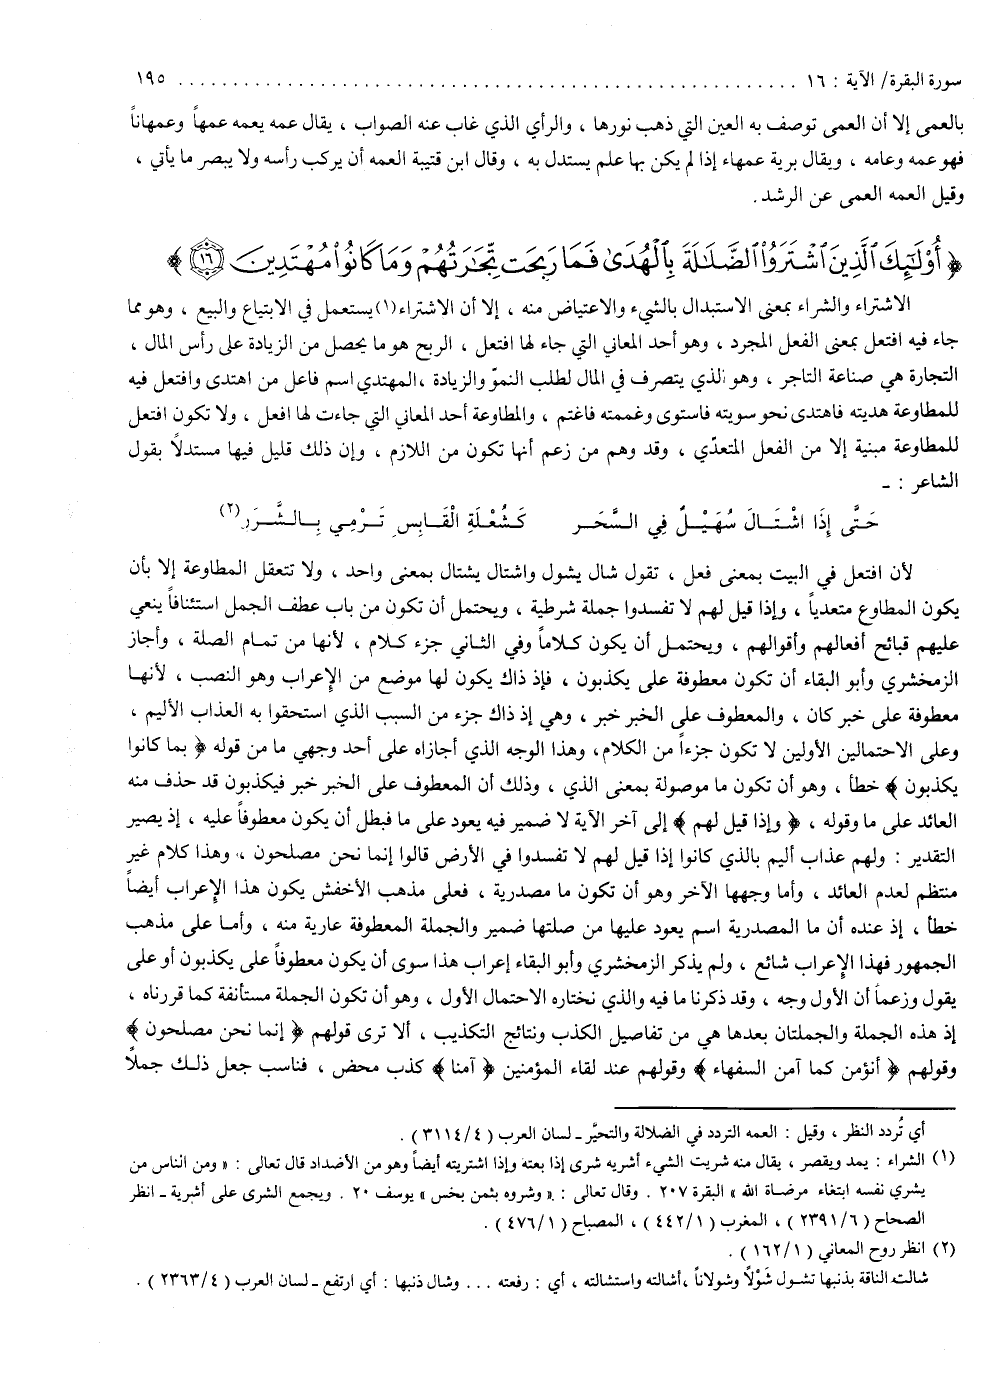 سورة البقرة/ الآية : ١٦ ........................................................ ١٩٥
بالعمى إلا أن العمى توصف به العين التي ذهب نورها ، والرأي الذي غاب عنه الصواب ، يقال عمه يعمه عمهاً وعمهاناً
فهو عمه وعامه ، ويقال برية عمهاء إذا لم يكن بها علم يستدل به ، وقال ابن قتيبة العمه أن يركب رأسه ولا يبصر ما يأتي ،
وقيل العمه العمى عن الرشد .
﴿ أُوْلَٰٓئِكَ ٱلَّذِينَ ٱشْتَرَوُا۟ ٱلضَّلَٰلَةَ بِٱلْهُدَىٰ فَمَا رَبِحَت تِّجَٰرَتُهُمْ وَمَا كَانُوا۟ مُهْتَدِينَ ١٦ ﴾
الاشتراء والشراء بمعنى الاستبدال بالشيء والاعتياض منه ، إلا أن الاشتراء(١)يستعمل في الابتياع والبيع ، وهو مما
جاء فيه افتعل بمعنى الفعل المجرد ، وهو أحد المعاني التي جاء لها افتعل ، الربح هو ما يحصل من الزيادة على رأس المال ،
التجارة هي صناعة التاجر ، وهو الذي يتصرف في المال لطلب النموّ والزيادة ،المهتدي اسم فاعل من اهتدى وافتعل فيه
للمطاوعة هديته فاهتدى نحو سويته فاستوى وغممته فاغتم ، والمطاوعة أحد المعاني التي جاءت لها افعل ، ولا تكون افتعل
للمطاوعة مبنية إلا من الفعل المتعدّي ، وقد وهم من زعم أنها تكون من اللازم ، وإن ذلك قليل فيها مستدلاً بقول
الشاعر : ـ
حَتَّى إِذَا اشْتَـالَ سُهَيْـلٌ فِي السَّحَـر كَشُعْلَةِ الْقَـابِسِ تَـرْمِي بِـالشَّـرَر(٢)
لأن افتعل في البيت بمعنى فعل ، تقول شال يشول واشتال يشتال بمعنى واحد ، ولا تتعقل المطاوعة إلا بأن
يكون المطاوع متعدياً ، وإذا قيل لهم لا تفسدوا جملة شرطية ، ويحتمل أن تكون من باب عطف الجمل استئنافاً ينعي
عليهم قبائح أفعالهم وأقوالهم ، ويحتمـل أن يكون كـلاماً وفي الثـاني جزء كـلام ، لأنها من تمـام الصلة ، وأجاز
الزمخشري وأبو البقاء أن تكون معطوفة على يكذبون ، فإذ ذاك يكون لها موضع من الإعراب وهو النصب ، لأنهـا
معطوفة على خبر كان ، والمعطوف على الخبر خبر ، وهي إذ ذاك جزء من السبب الذي استحقوا به العذاب الأليم ،
وعلى الاحتمالين الأولين لا تكون جزءاً من الكلام، وهذا الوجه الذي أجازاه على أحد وجهي ما من قوله ﴿ بما كانوا
يكذبون ﴾ خطأ ، وهو أن تكون ما موصولة بمعنى الذي ، وذلك أن المعطوف على الخبر خبر فيكذبون قد حذف منه
العائد على ما وقوله ، ﴿ وإذا قيل لهم ﴾ إلى آخر الآية لا ضمير فيه يعود على ما فبطل أن يكون معطوفاً عليه ، إذ يصير
التقدير : ولهم عذاب أليم بالذي كانوا إذا قيل لهم لا تفسدوا في الأرض قالوا إنما نحن مصلحون ، وهذا كلام غير
منتظم لعدم العائد ، وأما وجهها الآخر وهو أن تكون ما مصدرية ، فعلى مذهب الأخفش يكون هذا الإعراب أيضاً
خطأ ، إذ عنده أن ما المصدرية اسم يعود عليها من صلتها ضمير والجملة المعطوفة عارية منه ، وأمـا على مذهب
الجمهور فهذا الإعراب شائع ، ولم يذكر الزمخشري وأبو البقاء إعراب هذا سوى أن يكون معطوفاً على يكذبون أو على
يقول وزعماً أن الأول وجه ، وقد ذكرنا ما فيه والذي نختاره الاحتمال الأول ، وهو أن تكون الجملة مستأنفة كما قررناه ،
إذ هذه الجملة والجملتان بعدها هي من تفاصيل الكذب ونتائج التكذيب ، ألا ترى قولهم ﴿ إنما نحن مصلحون ﴾
وقولهم ﴿ أنؤمن كما آمن السفهاء ﴾ وقولهم عند لقاء المؤمنين ﴿ آمنا ﴾ كذب محض ، فناسب جعل ذلـك جملاً
أي تُردد النظر ، وقيل : العمه التردد في الضلالة والتحيَّر ـ لسان العرب ( ٣١١٤/٤ ) .
(١) الشراء : يمد ويقصر ، يقال منه شريت الشيء أشريه شرى إذا بعته وإذا اشتريته أيضاً وهو من الأضداد قال تعالى : « ومن الناس من
يشري نفسه ابتغاء مرضاة الله » البقرة ٢٠٧ . وقال تعالى : « وشروه بثمن بخس » يوسف ٢٠ . ويجمع الشرى على أشرية ـ انظر
الصحاح ( ٢٣٩١/٦ ) ، المغرب ( ٤٤٢/١ ) ، المصباح ( ٤٧٦/١ ) .
(٢) انظر روح المعاني ( ١٦٢/١ ) .
شالت الناقة بذنبها تشول شَوْلاً وشولاناً ،أشالته واستشالته ، أي : رفعته ... وشال ذنبها : أي ارتفع ـ لسان العرب ( ٢٣٦٣/٤ ) .